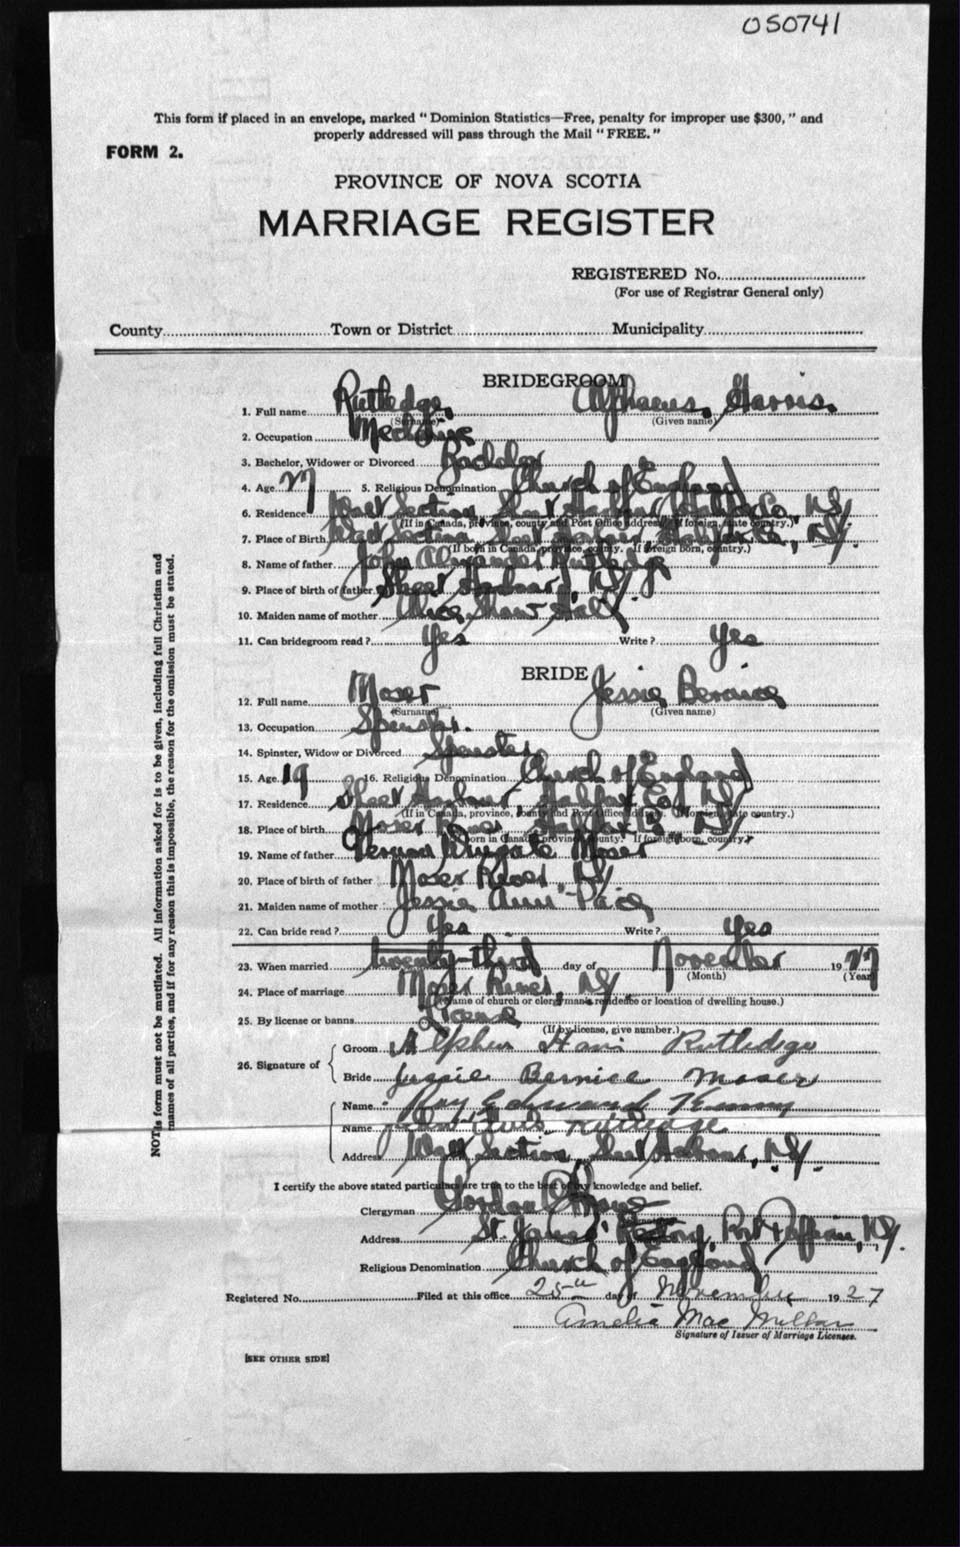 050741
This form if placed in an envelope, marked “Dominion Statistics—Free, penalty for improper use $300,” and
properly addressed will pass through the Mail “FREE.”
FORM 2.
PROVINCE OF NOVA SCOTIA
MARRIAGE REGISTER
REGISTERED No.
(For use of Registrar General only)
County Town or District Municipality
BRIDEGROOM
1. Full name Rutledge. Harris.
(Surname) (Given name)
2. Occupation
3. Bachelor, Widower or Divorced
4. Age 27 5. Religious Denomination Church of England
6. Residence West Section Sheet Harbour, Halifax Co., N.S.
(If in Canada, province, county and Post Office address. If foreign, state country.)
7. Place of Birth West Section Sheet Harbour Halifax Co., N.S.
(If born in Canada, province, county. If foreign born, country.)
8. Name of father John Alexander Rutledge
9. Place of birth of father Sheet Harbour, N.S.
10. Maiden name of mother Shaw Hall
11. Can bridegroom read? Yes Write? Yes
BRIDE
12. Full name Moser Jessie Bernice
(Surname) (Given name)
13. Occupation
14. Spinster, Widow or Divorced Spinster
15. Age 19 16. Religious Denomination Church of England
17. Residence Sheet Harbour, Halifax Co., N.S.
(If in Canada, province, county and Post Office address. If foreign, state country.)
18. Place of birth Moser River, Halifax Co., N.S.
(If born in Canada, province, county. If foreign born, country.)
19. Name of father Moser
20. Place of birth of father Moser River N.S.
21. Maiden name of mother Jessie Ann
22. Can bride read? Yes Write? Yes
23. When married twenty-third day of November 1927
(Month) (Year)
24. Place of marriage Moser River, N.S.
(Name of church or clergyman's residence or location of dwelling house.)
25. By license or banns License
(If by license, give number.)
26. Signature of
Groom Rutledge
Bride Jessie Bernice Moser
Name Roy Edward
Name Rutledge
Address West Section, Sheet Harbour, N.S.
I certify the above stated particulars are true to the best of my knowledge and belief.
Clergyman Gordon
Address St. James' Rectory, Port Dufferin, N.S.
Religious Denomination Church of England
Registered No. Filed at this office 25th day of November 1927
Amelia Mac Millan
Signature of Issuer of Marriage Licenses.
[SEE OTHER SIDE]
NOT is form must not be mutilated. All information asked for is to be given, including full Christian and
names of all parties, and if for any reason this is impossible, the reason for the omission must be stated.